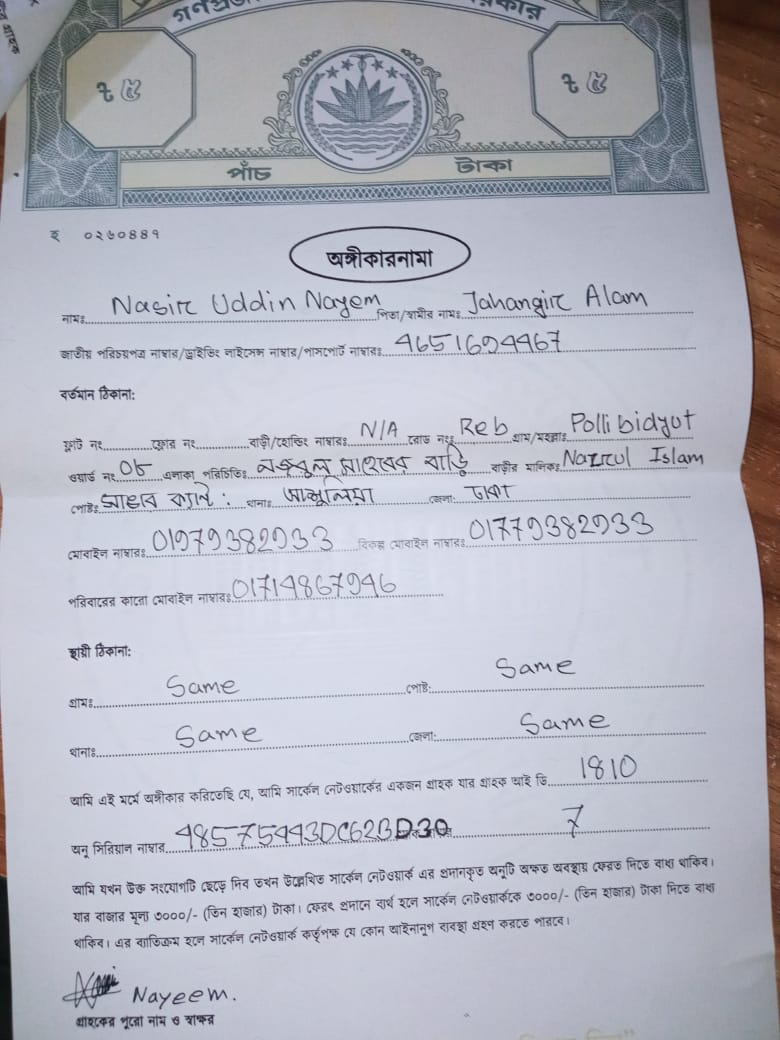 গণপ্রজা কার
৳ ৫ ৳ ৫
পাঁচ টাকা
ই ০২৬০৪৪৭
অঙ্গীকারনামা
নামঃ Nasir Uddin Nayem পিতা/স্বামীর নামঃ Jahangir Alam
জাতীয় পরিচয়পত্র নাম্বার/ড্রাইভিং লাইসেন্স নাম্বার/পাসপোর্ট নাম্বারঃ 4651694467
বর্তমান ঠিকানা:
ফ্লাট নং ফ্লোর নং বাড়ী/হোল্ডিং নাম্বারঃ N/A রোড নংঃ Reb গ্রাম/মহল্লাঃ Polli bidyut
ওয়ার্ড নং 08 এলাকা পরিচিতিঃ সাহেবের বাড়ি বাড়ীর মালিকঃ Nazrul Islam
পোষ্টঃ থানাঃ আশুলিয়া জেলা: ঢাকা
মোবাইল নাম্বারঃ 01979382933 বিকল্প মোবাইল নাম্বারঃ 01779382933
পরিবারের কারো মোবাইল নাম্বারঃ 01714867946
স্থায়ী ঠিকানা:
গ্রামঃ Same পোষ্ট: Same
থানাঃ Same জেলা: Same
আমি এই মর্মে অঙ্গীকার করিতেছি যে, আমি সার্কেল নেটওয়ার্কের একজন গ্রাহক যার গ্রাহক আই ডি 1810
অনু সিরিয়াল নাম্বার 48575443DC62BD30 7
আমি যখন উক্ত সংযোগটি ছেড়ে দিব তখন উল্লেখিত সার্কেল নেটওয়ার্ক এর প্রদানকৃত অনুটি অক্ষত অবস্থায় ফেরত দিতে বাধ্য থাকিব।
যার বাজার মূল্য ৩০০০/- (তিন হাজার) টাকা। ফেরৎ প্রদানে ব্যর্থ হলে সার্কেল নেটওয়ার্ককে ৩০০০/- (তিন হাজার) টাকা দিতে বাধ্য
থাকিব। এর ব্যতিক্রম হলে সার্কেল নেটওয়ার্ক কর্তৃপক্ষ যে কোন আইনানুগ ব্যবস্থা গ্রহণ করতে পারবে।
Nayeem.
গ্রাহকের পুরো নাম ও স্বাক্ষর